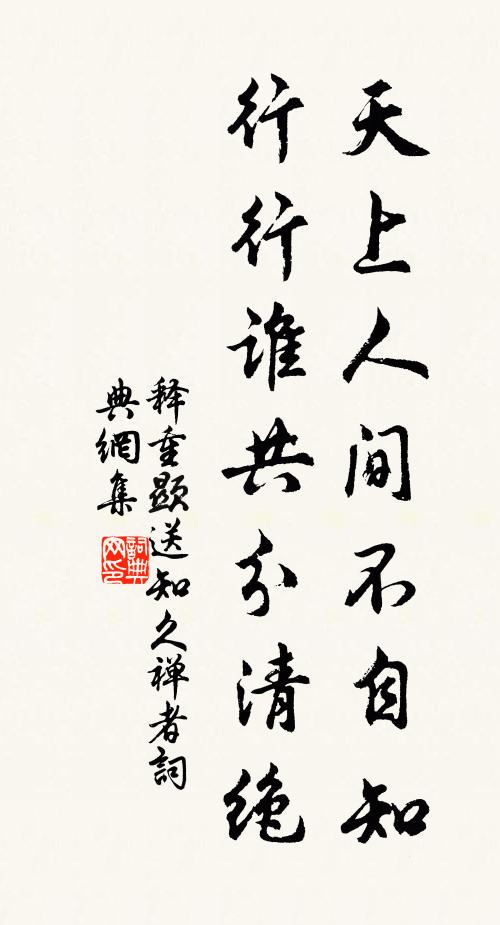 天上人间不自知
行行谁共分清绝
释重顕送知久禅者詞
典網集
詞典网印